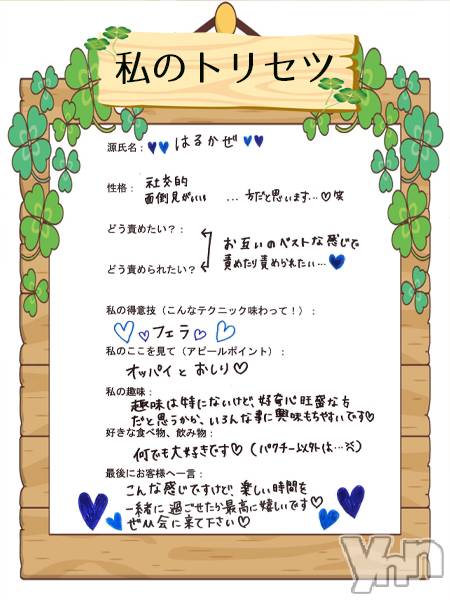 私のトリセツ
源氏名： はるかぜ
性格： 社交的
面倒見がいい ...方だと思います...♡笑
どう責めたい？：
お互いのベストな感じで
責めたり責められたい...
どう責められたい？
私の得意技（こんなテクニック味わって！）：
フェラ
私のここを見て（アピールポイント）：
オッパイとおしり♡
私の趣味：
趣味は特にないけど、好奇心旺盛な方
だと思うから、いろんな事に興味もちやすいです♡
好きな食べ物、飲み物：
何でも大好きです♡（パクチー以外は...
最後にお客様へ一言：
こんな感じですけど、楽しい時間を
一緒に過ごせたら最高に嬉しいです♡
ぜひ会に来て下さい♡